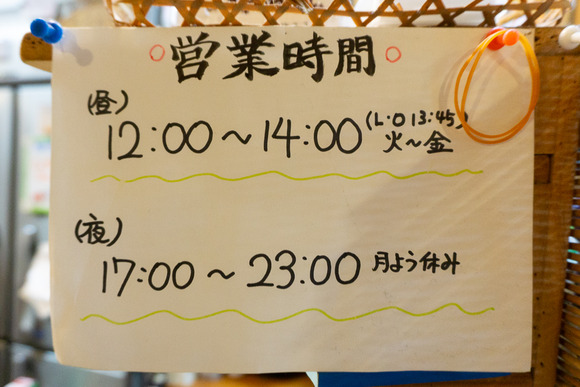 ○営業時間○
(昼)
12:00～14:00 (L・O 13:45)
火～金
(夜)
17:00～23:00 月よう休み